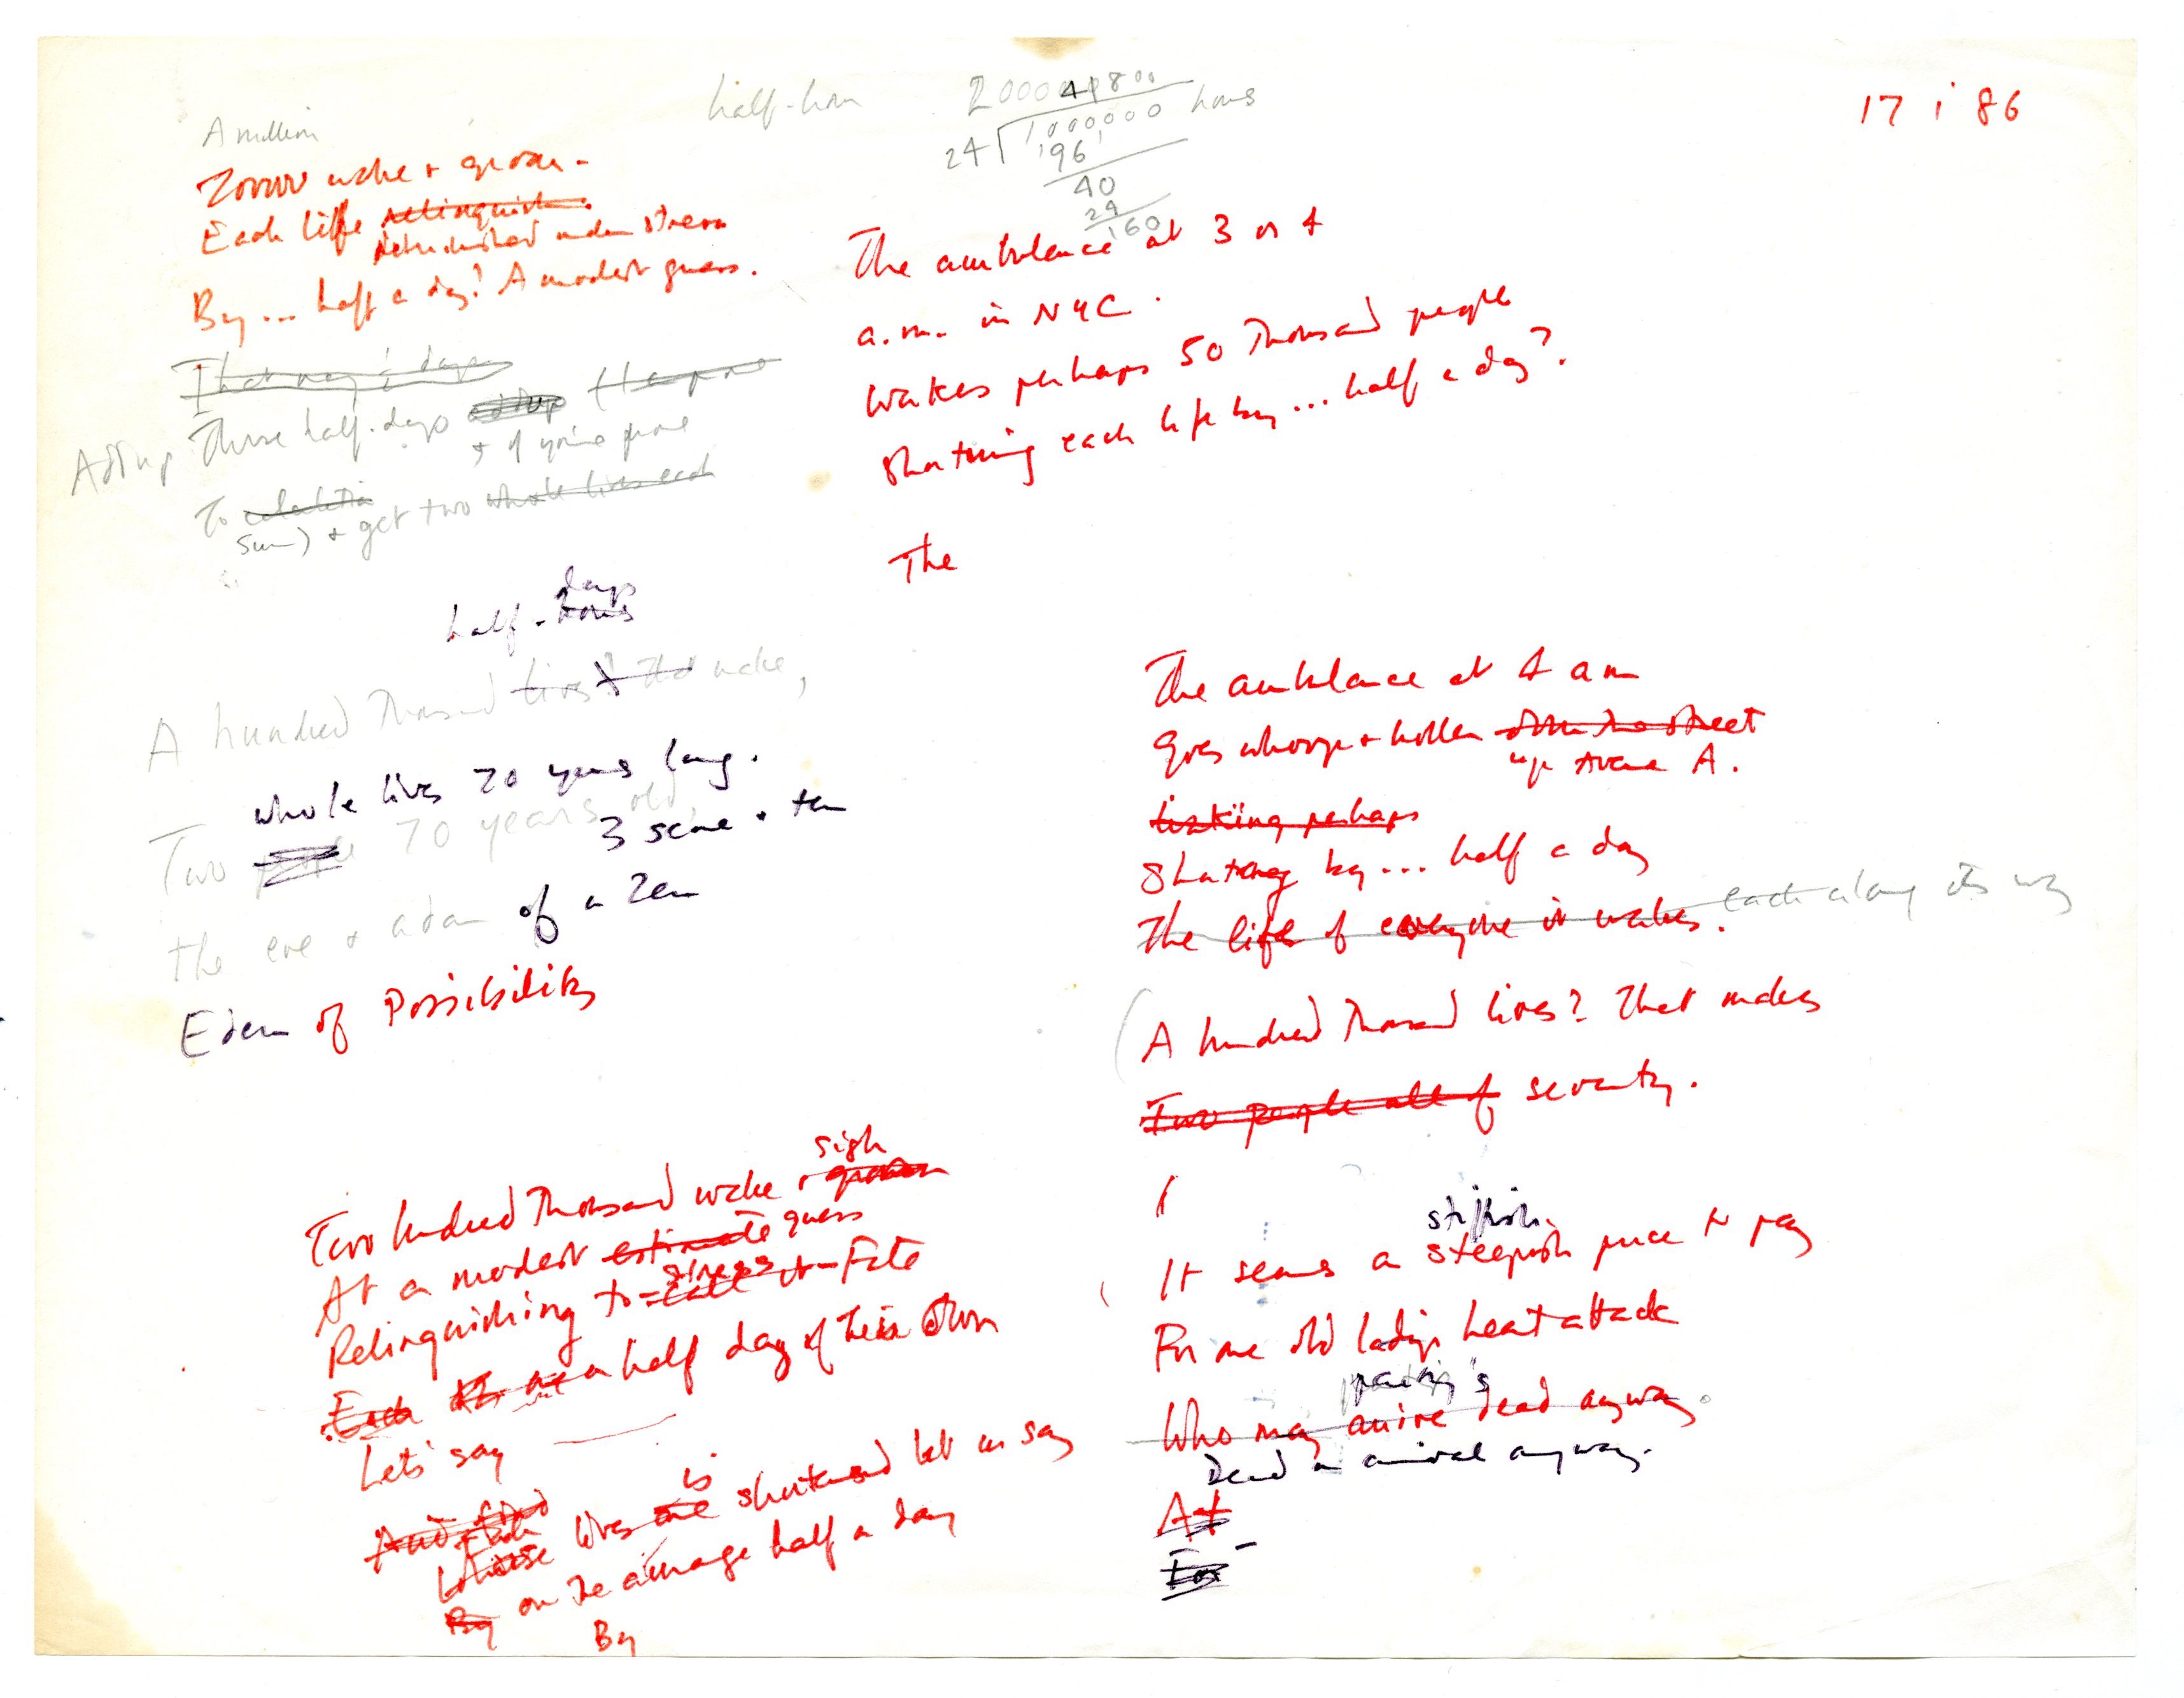 17 i 86
half-hour
A million
200000 wake + groan -
Each life relinquish
diminished under stress
By ... half a day? A modest guess.
Those half-days
Add up
+ if you're prone
To calculation
sum) + get two whole lives each
half-hours
days
A hundred thousand lives? That make,
whole lives 70 years long.
Two people 70 years old,
3 score + ten
the eve + adam of a Zen
Eden of Possibility
Two hundred thousand wake + groan
sigh
At a modest estimate guess
Relinquishing to stress Fate
Each a half day of their own
Let's say
is
lives are shortened let us say
By on the average half a day
By
41800
24 1000000 hours
96
40
24
160
The ambulance at 3 or 4
a.m. in NYC.
Wakes perhaps 50 thousand people
Shortening each life by ... half a day?.
The
The ambulance at 4 am
Goes whoop + holler down the street
up Avenue A.
perhaps
Shortening by ... half a day
The life of everyone it wakes. each along its way
(A hundred thousand lives? That makes
Two people all of seventy.
(
stiffish
It seems a steepish price to pay
For one old lady's heart attack
Who may arrive dead anyway.
Dead on arrival anyway.
At
For